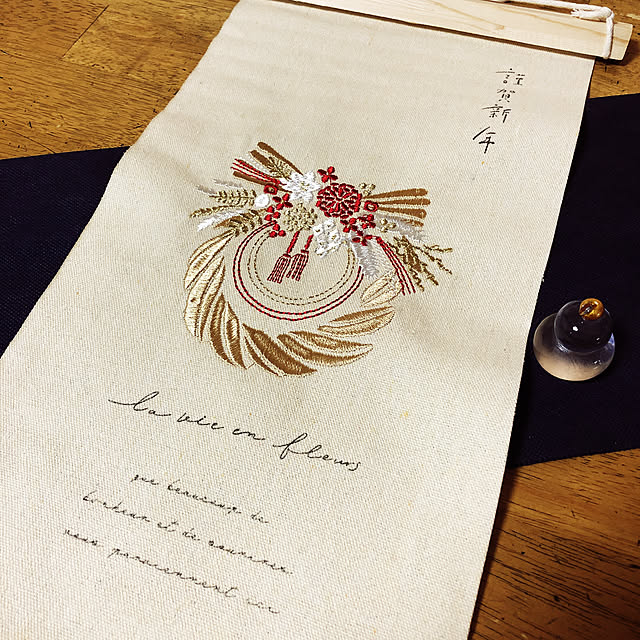 謹賀新年
la vie en fleurs
que beaucoup de
bonheur et de sourires
vous parviennent